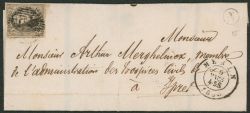 Monsieur
Monsieur Arthur Merghelinck, membre
de l'administration des hospices civils de
à
Ypres